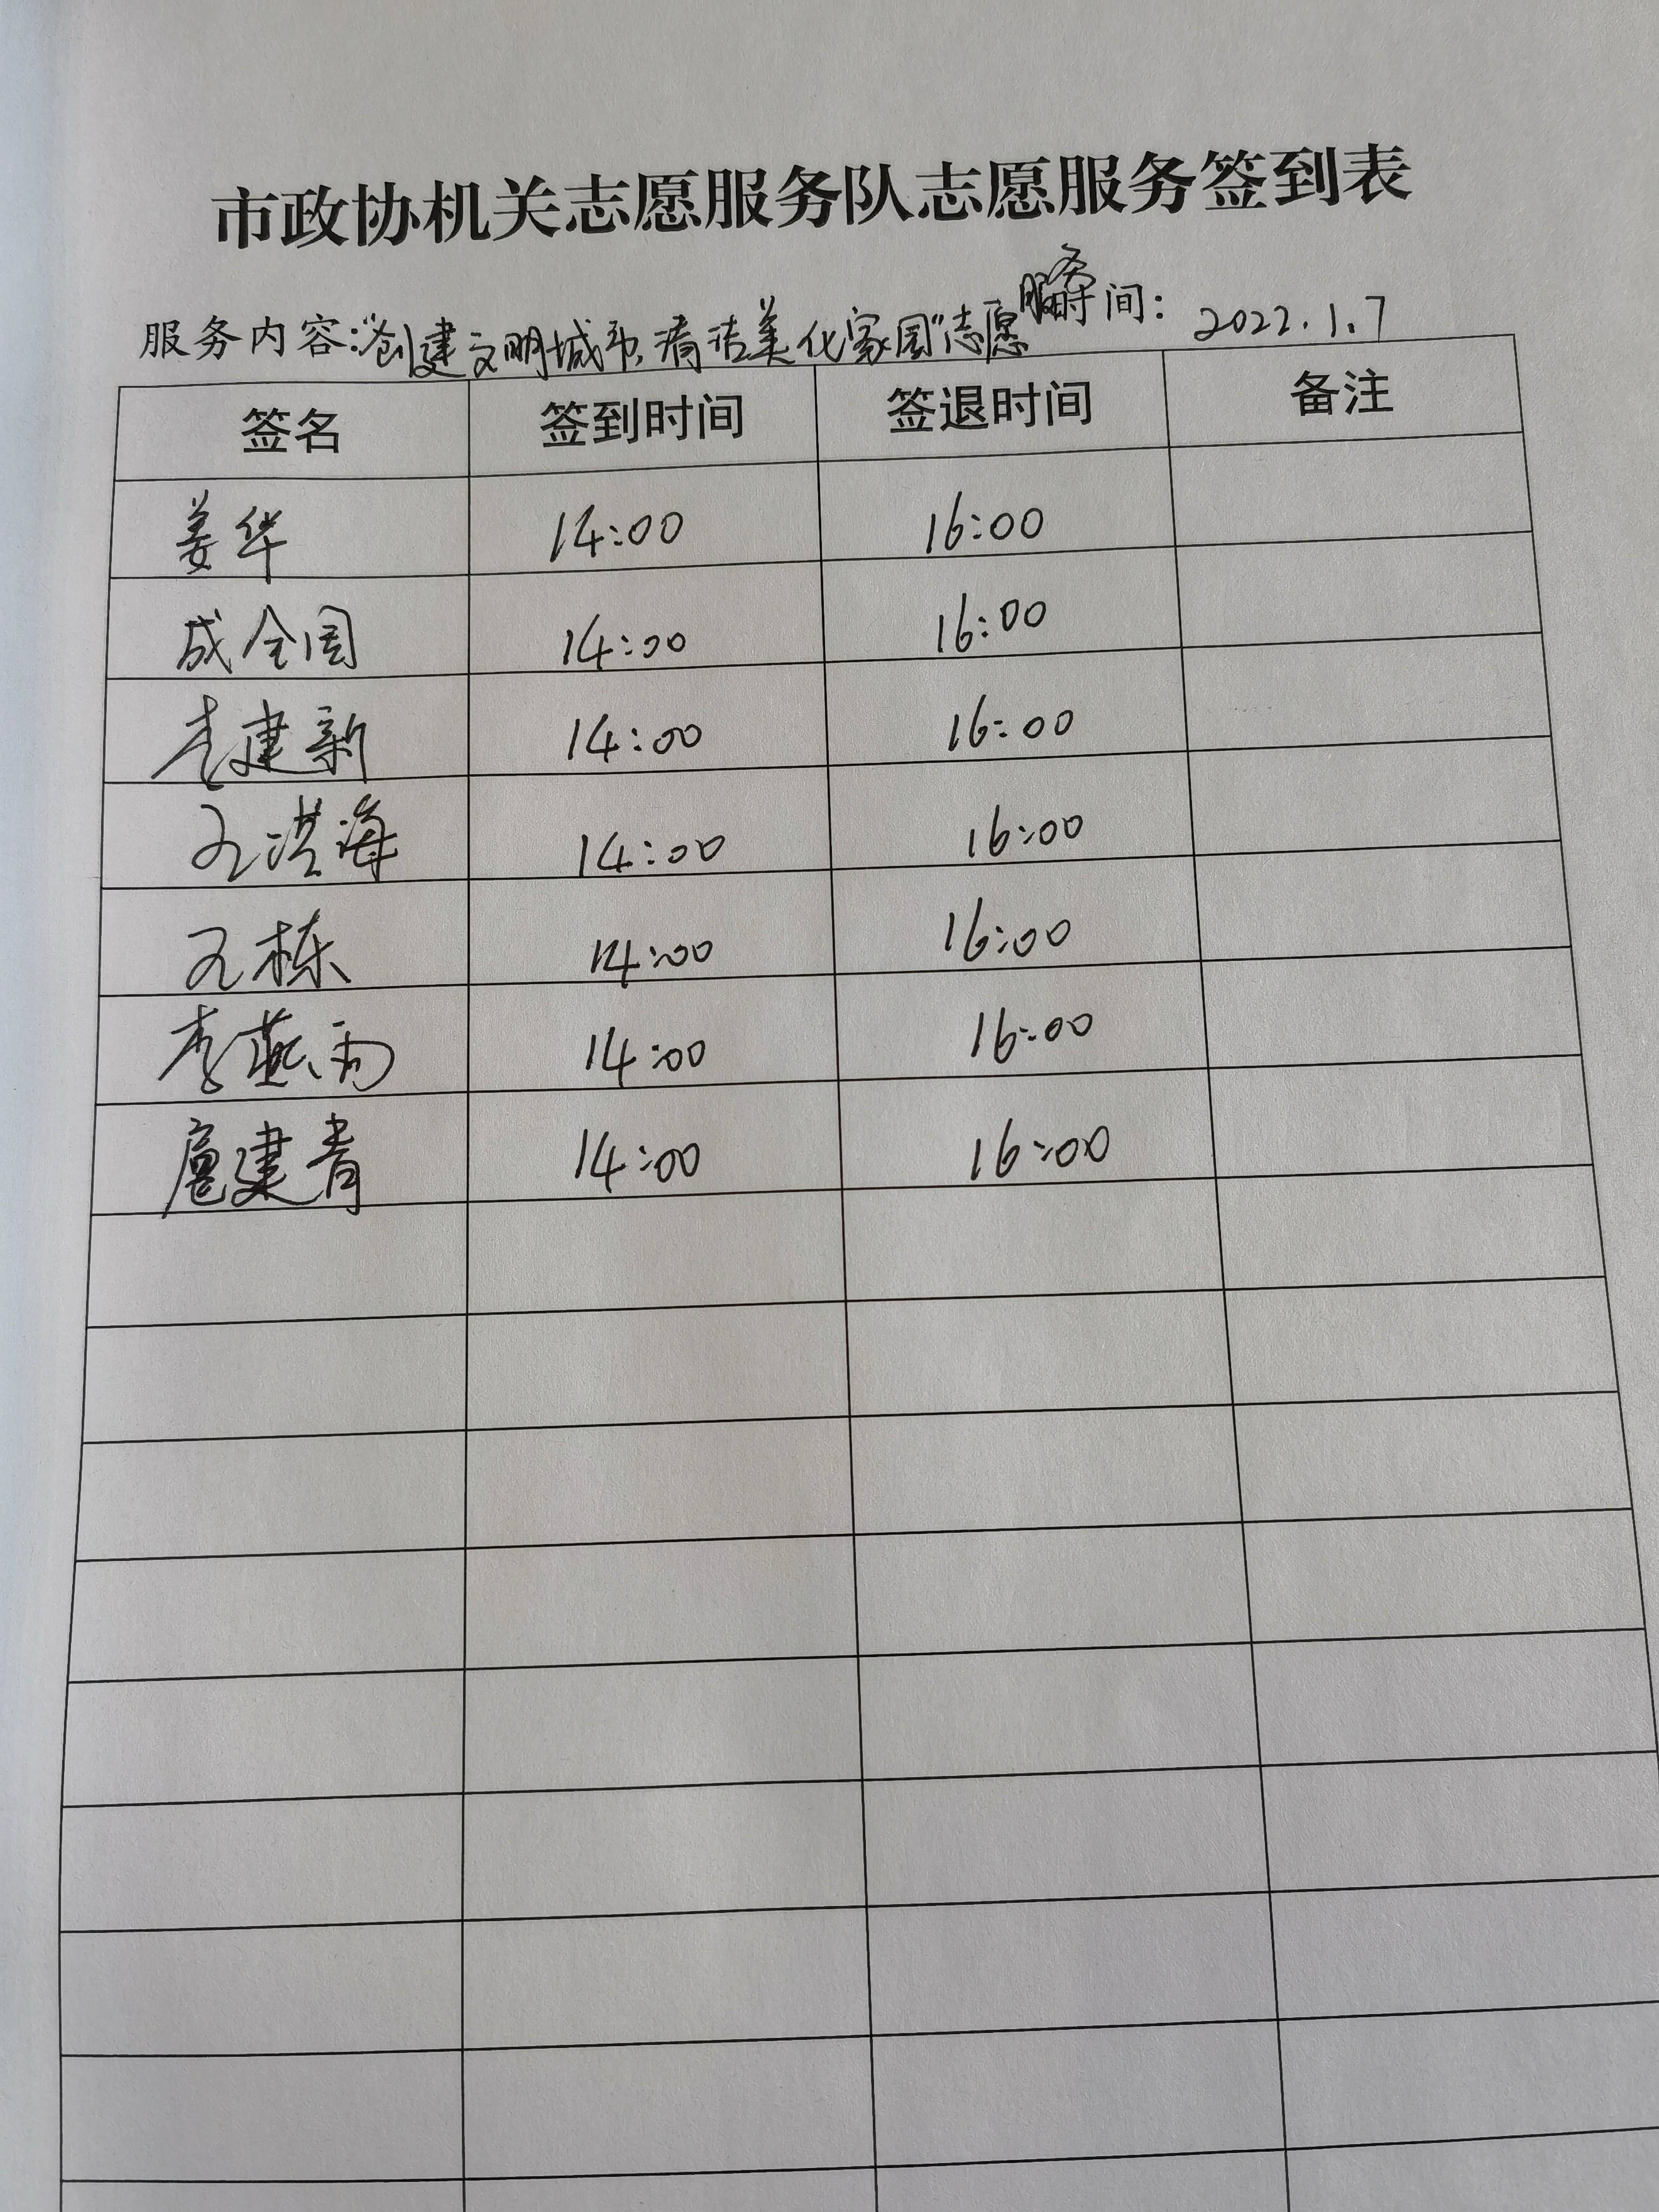 市政协机关志愿服务队志愿服务签到表
服务内容:“创建文明城市,清洁美化家园”志愿服务 时间: 2022.1.7
签名 签到时间 签退时间 备注
姜华 14:00 16:00
成全国 14:00 16:00
李建新 14:00 16:00
孔洪海 14:00 16:00
孔栋 14:00 16:00
李燕 14:00 16:00
扈建青 14:00 16:00